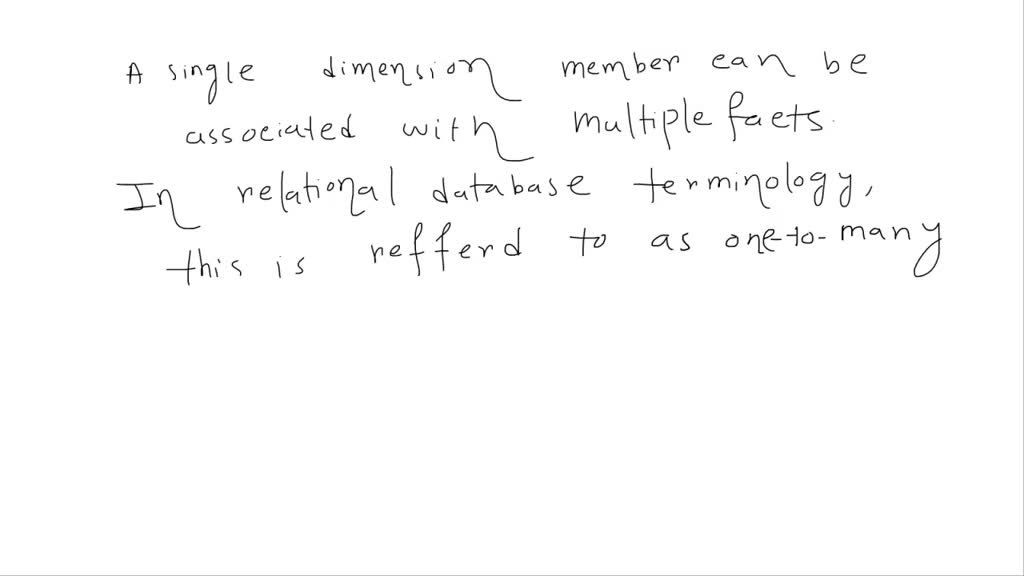 A single dimension member can be
associated with multiple facts.
In relational database terminology,
this is refferd to as one-to-many